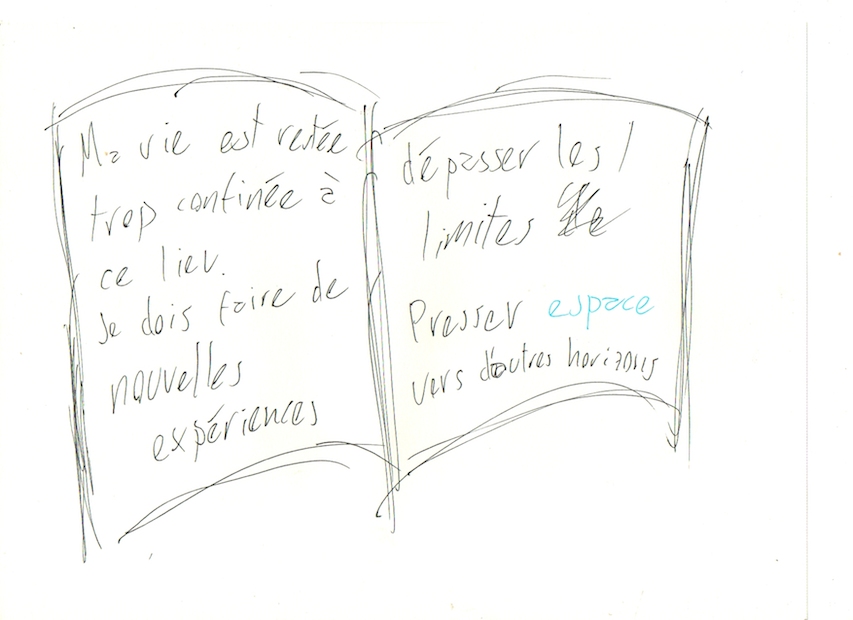 Ma vie est restée
trop confinée à
ce lieu.
Je dois faire de
nouvelles
expériences
dépasser les
limites
Presser espace
vers d'autres horizons